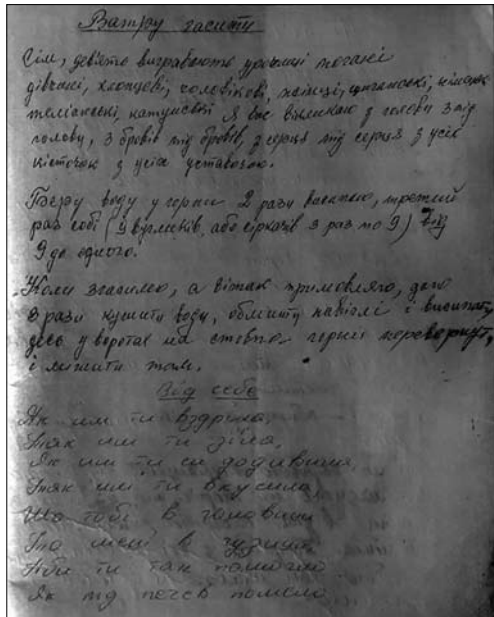 Ватру гасити
Сім, девʼять вигравають урочищі погані
дівчачі, хлопцеві, чоловікові, циганські,
Я вас викликаю з голови з під
голови, з бровів під бровів, з серця під серця з усіх
кісточок з усіх уставочок.
Беру воду у горня 2 рази висипаю, третий
раз собі (9 вугликів, або сірказів 3 раз по 9) Від
9 до одного.
Коли згасимо, а вітак примовляю, даю
3 рази кусити води, обмити навіглі і висипати
десь у воротах на стовпа горня перевернути,
і лишити там.
Від себе
Як им ти вздріла,
Так им ти зʼїла,
Як им ти си додивила,
Так им ти вкусила
Що тобі в голови
То мені в
Аби ти так помогло
Як під печев помело